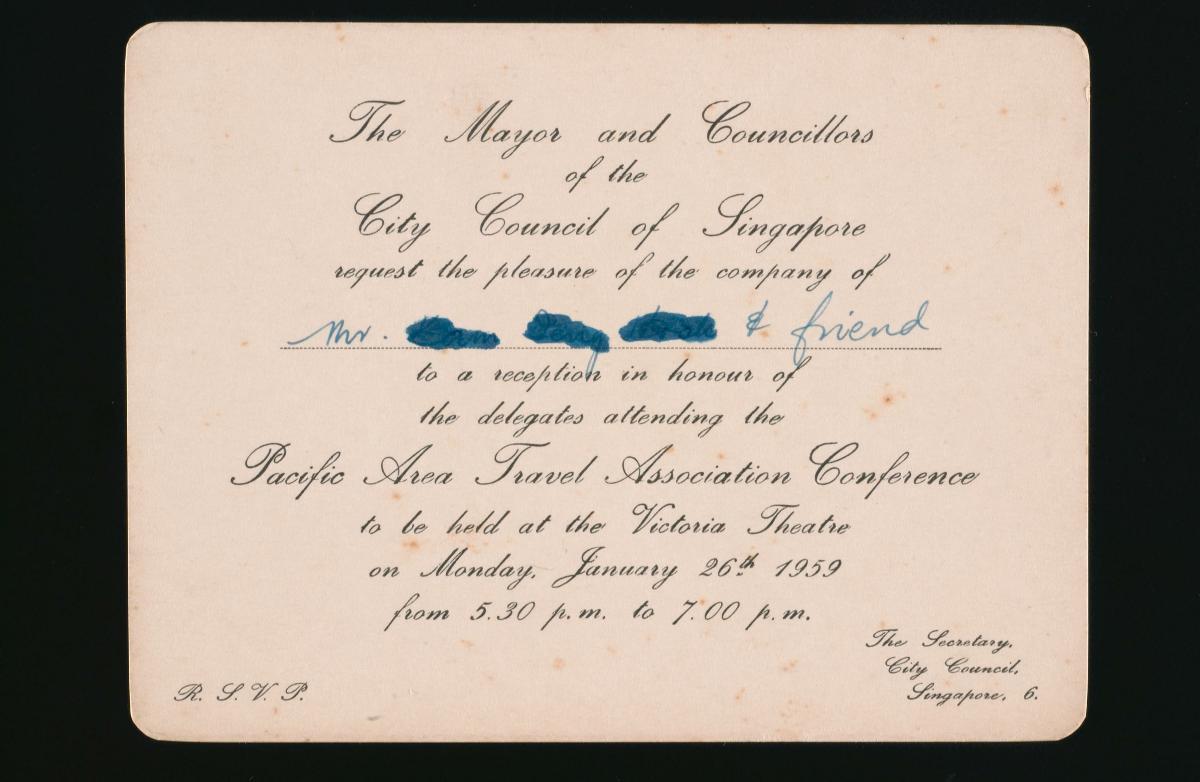 The Mayor and Councillors
of the
City Council of Singapore
request the pleasure of the company of
Mr. & friend
to a reception in honour of
the delegates attending the
Pacific Area Travel Association Conference
to be held at the Victoria Theatre
on Monday, January 26th 1959
from 5.30 p.m. to 7.00 p.m.
The Secretary,
City Council,
Singapore, 6.
R. S. V. P.